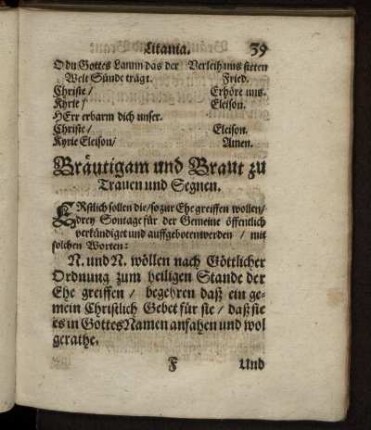 Litania. 39
O du Gottes Lamm das der Verleih uns steten
Welt Sünde trägt. Fried.
Christe/ Erhöre uns.
Kyrie/ Eleison.
HErr erbarm dich unser.
Christe/ Eleison.
Kyrie Eleison/ Amen.
Bräutigam und Braut zu
Trauen und Segnen.
ERstlich sollen die/ so zur Ehe greiffen wollen/
drey Sontage für der Gemeine öffentlich
verkündiget und auffgeboten werden / mit
solchen Worten:
N. und N. wöllen nach Göttlicher
Ordnung zum heiligen Stande der
Ehe greiffen / begehren daß ein ge-
mein Christlich Gebet für sie / daß sie
es in Gottes Namen anfahen und wol
gerathe.
F Und